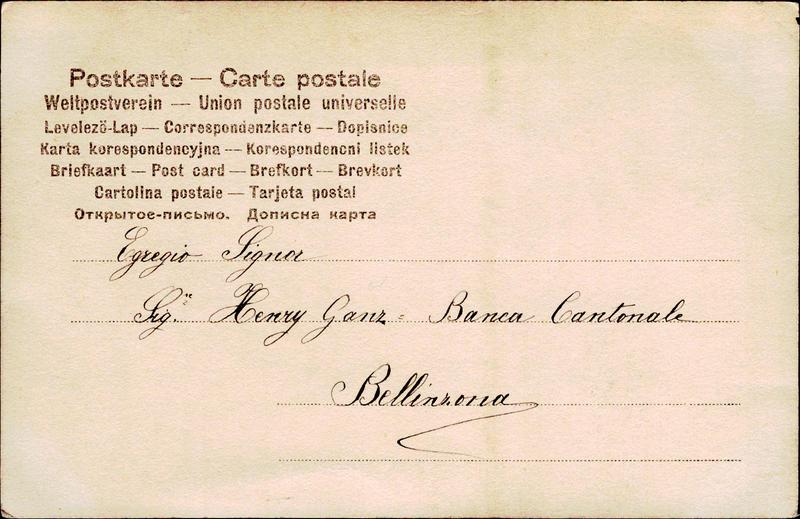 Postkarte — Carte postale
Weltpostverein — Union postale universelle
Levelező-Lap — Correspondenzkarte — Dopisnice
Karta korespondencyjna — Korespondencni listek
Briefkaart — Post card — Brefkort — Brevkort
Cartolina postale — Tarjeta postal
Открытое-письмо. Дописна карта
Egregio Signor
Sig.re Henry Ganz = Banca Cantonale
Bellinzona